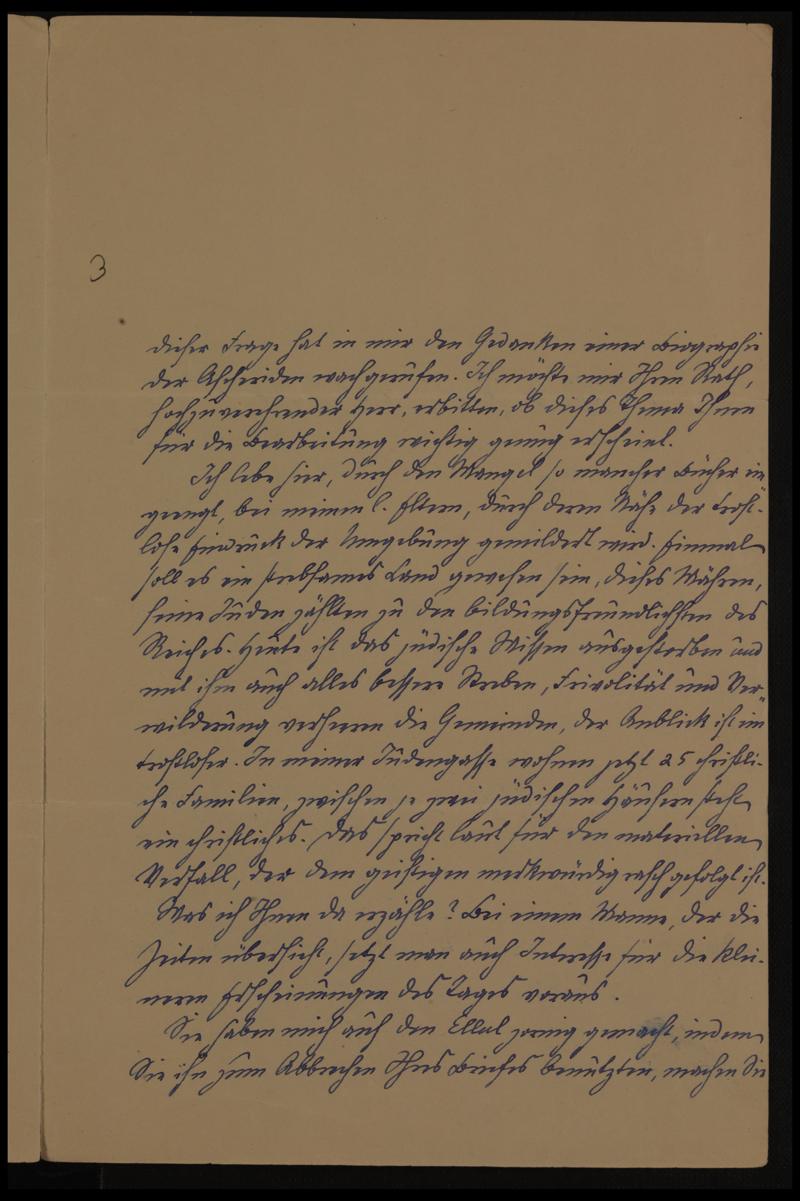 3
dieser Frage hat in mir den Gedanken einer Biographie
der Ascheriden wachgerufen. Ich möchte mir Ihren Rath,
hochzuverehrender Herr, erbitten, ob dieses Thema Ihnen
für die Bearbeitung wichtig genug erscheint.
Ich lebe hier, durch den Mangel so mancher Bücher ein
geengt, bei meinen l. Eltern, durch deren Nähe der trost-
lose Eindruck der Umgebung gemildert wird. Einmal
soll es ein strebsames Land gewesen sein, dieses Mähren,
seine Juden zählten zu den bildungsfreundlichsten des
Reiches. Heute ist das jüdische Wissen ausgestorben und
mit ihm auch alles bessere Streben, Frivolität und Ver-
wilderung verheeren die Gemeinden, der Anblick ist ein
trostloser. In meiner Judengasse wohnen jetzt 25 christli-
che Familien, zwischen je zwei jüdischen Häusern steht
ein christliches. Das spricht laut für den materiellen
Verfall, der dem geistigen merkwürdig rasch gefolgt ist.
Was ich Ihnen da erzähle? Bei einem Manne, der die
Zeiten übersieht, setzt man auch Interesse für die klei-
neren Erscheinungen des Tages voraus.
Sie haben mich auf den Ellul zornig gemacht, indem
Sie ihn zum Abbrechen Ihres Briefes benützten, machen Sie